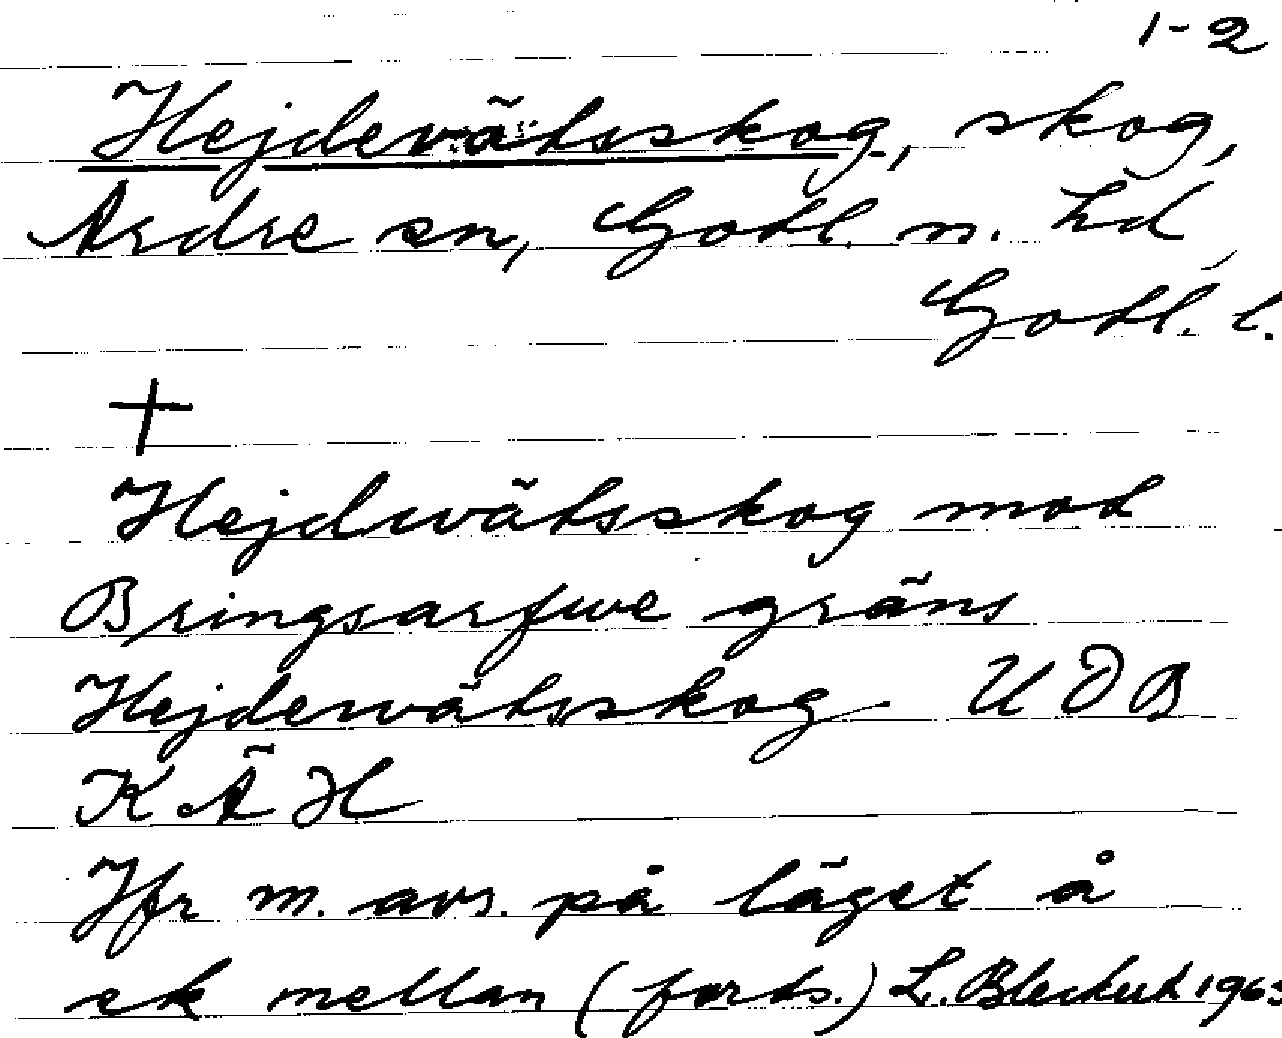 1-2
Hejdevätsskog, skog,
Ardre sn, Gotl. n. hd,
Gotl. l.
†
Hejdwätsskog mod
Bringsarfwe gräns
Hejdewätsskog UDB
K Ä H
Jfr m. avs. på läget å
ek mellan (forts.) L. Bleckert 1963